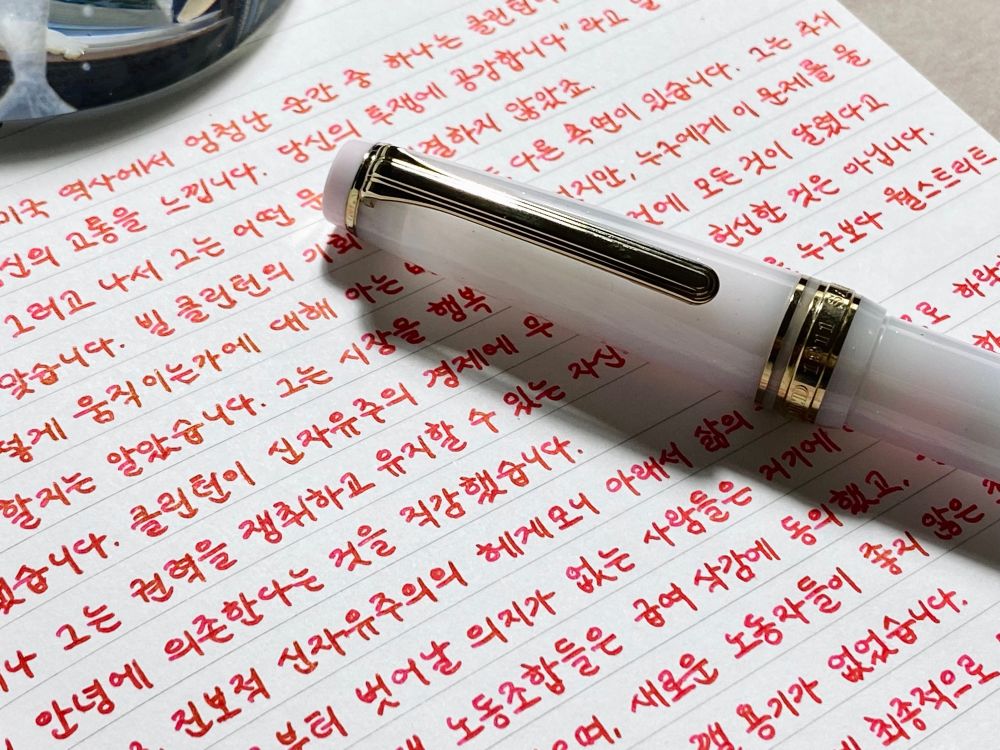 미국 역사에서 엄청난 순간 중 하나는 클린턴이
신의 고통을 느낍니다. 당신의 투쟁에 공감합니다" 라고 말
그러고 나서 그는 어떤 문 결하지 않았죠.
맞습니다. 빌 클린턴의 기회 다른 측면이 있습니다. 그는 주식
떻게 움직이는가에 대해 아는 지만, 누구에게 이 문제를 물
할지는 알았습니다. 그는 시장을 행복 것에 모든 것이 달렸다고
했습니다. 클린턴이 신자유주의 경제에 우 헌신한 것은 아닙니다.
나 그는 권력을 쟁취하고 유지할 수 있는 자신 누구보다 월스트리트
안녕에 의존한다는 것을 직감했습니다. 로
진보적 신자유주의의 헤게모니 아래서 삶의
부터 벗어날 의지가 없는 사람들은 저기에
노동조합들은 급여 삭감에 동의했고,
며, 새로운 노동자들이 좋지 않은
용기가 없었습니다.
최종적으로